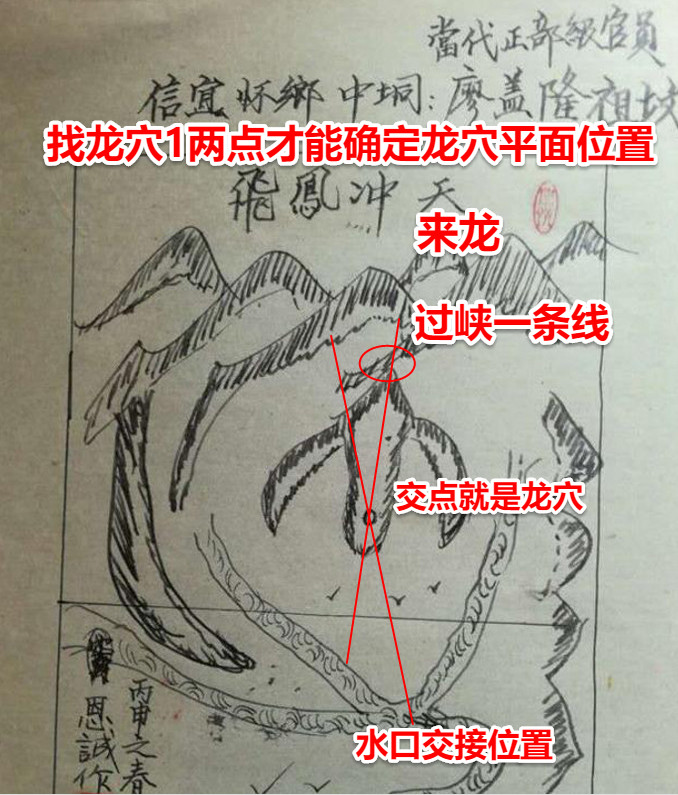 當代正部級官員
信宜怀鄉中垌:廖盖隆祖坟
找龙穴1两点才能确定龙穴平面位置
飛鳳冲天
来龙
过峡一条线
交点就是龙穴
水口交接位置
丙申之春
恩誠作